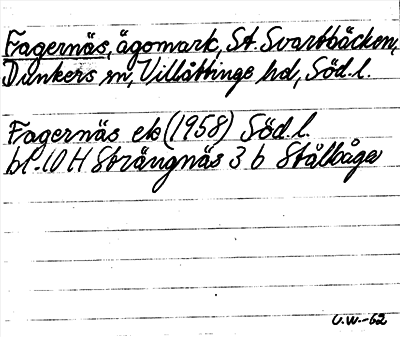 Fagernäs, ägomark, St. Svartbäcken,
Dunkers sn, Villåttinge hd, Söd. l.
Fagernäs ek (1958) Söd. l.
bl. 10 H Strängnäs 3 b Stålboga
U.W.-62